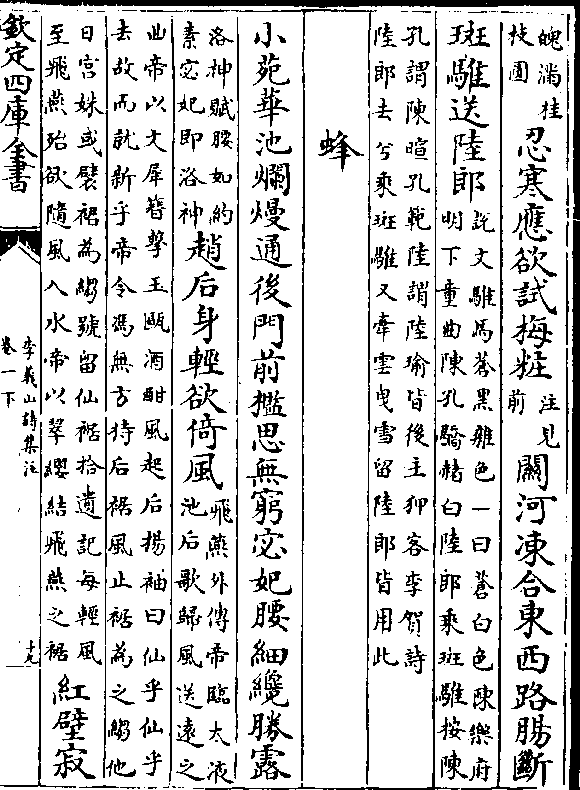 魄滿桂
枝圓
忍寒應欲試梅粧
注見
前
關河凍合東西路腸斷
斑騅送陸郎
說文騅馬蒼黑雜色一曰蒼白色陳樂府
明下童曲陳孔驕赭白陸郎乘斑騅按陳
孔謂陳暄孔範陸謂陸瑜皆後主狎客李賀詩
陸郎去兮乘斑騅又牽雲曳雪留陸郎皆用此
蜂
小苑華池爛熳通後門前檻思無窮宓妃腰細纔勝露
洛神賦腰如約
素宓妃即洛神
趙后身輕欲倚風
飛燕外傳帝臨太液
池后歌歸風送遠之
曲帝以文犀簪擊玉甌酒酣風起后揚袖曰仙乎仙乎
去故而就新乎帝令馮無方持后裾風止裾為之縐他
日宮姝或襞裾為縐號留仙裾拾遺記每輕風
至飛燕殆欲隨風入水帝以翠纓結飛燕之裾
紅壁寂
欽定四庫全書
李義山詩集注
卷一下
十九